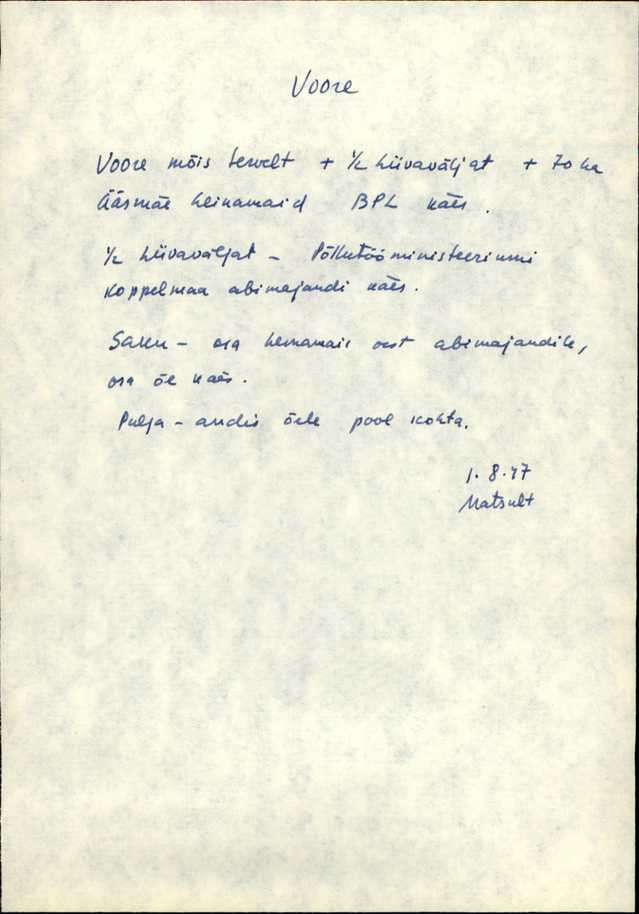 Voore
Voore mõis tervelt + 1/2 Liivaväljat + 70 ha
Ääsmäe heinamaid BPL käes.
1/2 Liivaväljat - Põllutööministeeriumi
Koppelmaa abimajandi käes.
Saku - osa heinamais abimajandile,
osa õe käes.
Pulja - andis õele pool kohta.
1. 8. 47
Matsult